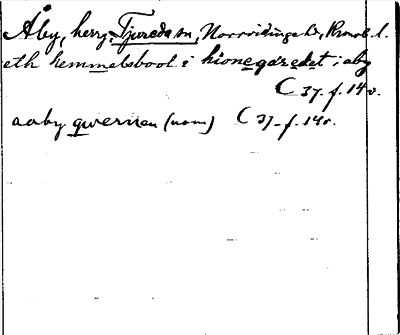 Åby, herg. Tjureda sn, Norrvidinge hd, Kronob. l.
eth hemmelsbool i hionegæredet i aby
C 37. f. 14 v.
aaby qwernen (nom) C 37. f. 14v.